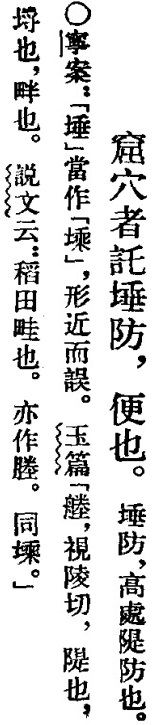 窟穴者託埵防，便也。埵防，高處隄防也。
○寧案：「埵」當作「塖」，形近而誤。玉篇「塍，視陵切，隄也，
埒也，畔也。説文云：稻田畦也。亦作塍。同塖。」